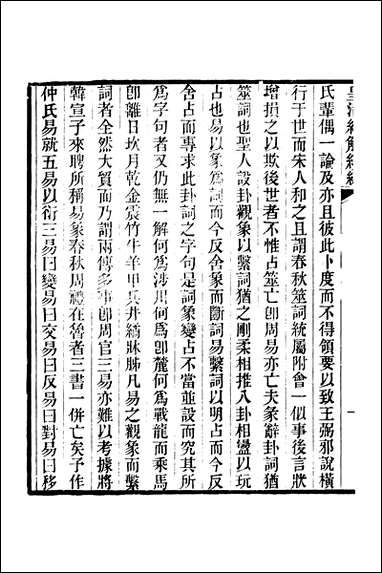 皇清經解續編
氏輩偶一論及亦且彼此卜度而不得領要以致王弼邪說橫
行于世而宋人和之且謂春秋筮詞統屬附會一似事後言狀
增損之以欺後世者不惟占筮亡卽周易亦亡夫象辭卦詞猶
筮詞也聖人設卦觀象以繫詞猶之剛柔相推八卦相盪以玩
占也易以象爲詞而今反舍象而斷詞易繫詞以明占而今反
舍占而專求此卦詞之字句是詞象變占不當並設而究其所
爲字句者又仍無一解何爲涉川何爲卽麓何爲戰龍而乘馬
卽離日坎月乾金震竹牛羊甲兵井繘牀胏凡易之觀象而繫
詞者全然大貿而乃謂兩傳多事卽周官三易亦難以考據將
韓宣子來聘所稱易象春秋周禮在魯者三書一併亡矣予作
仲氏易就五易以衍三易曰變易曰交易曰反易曰對易曰移